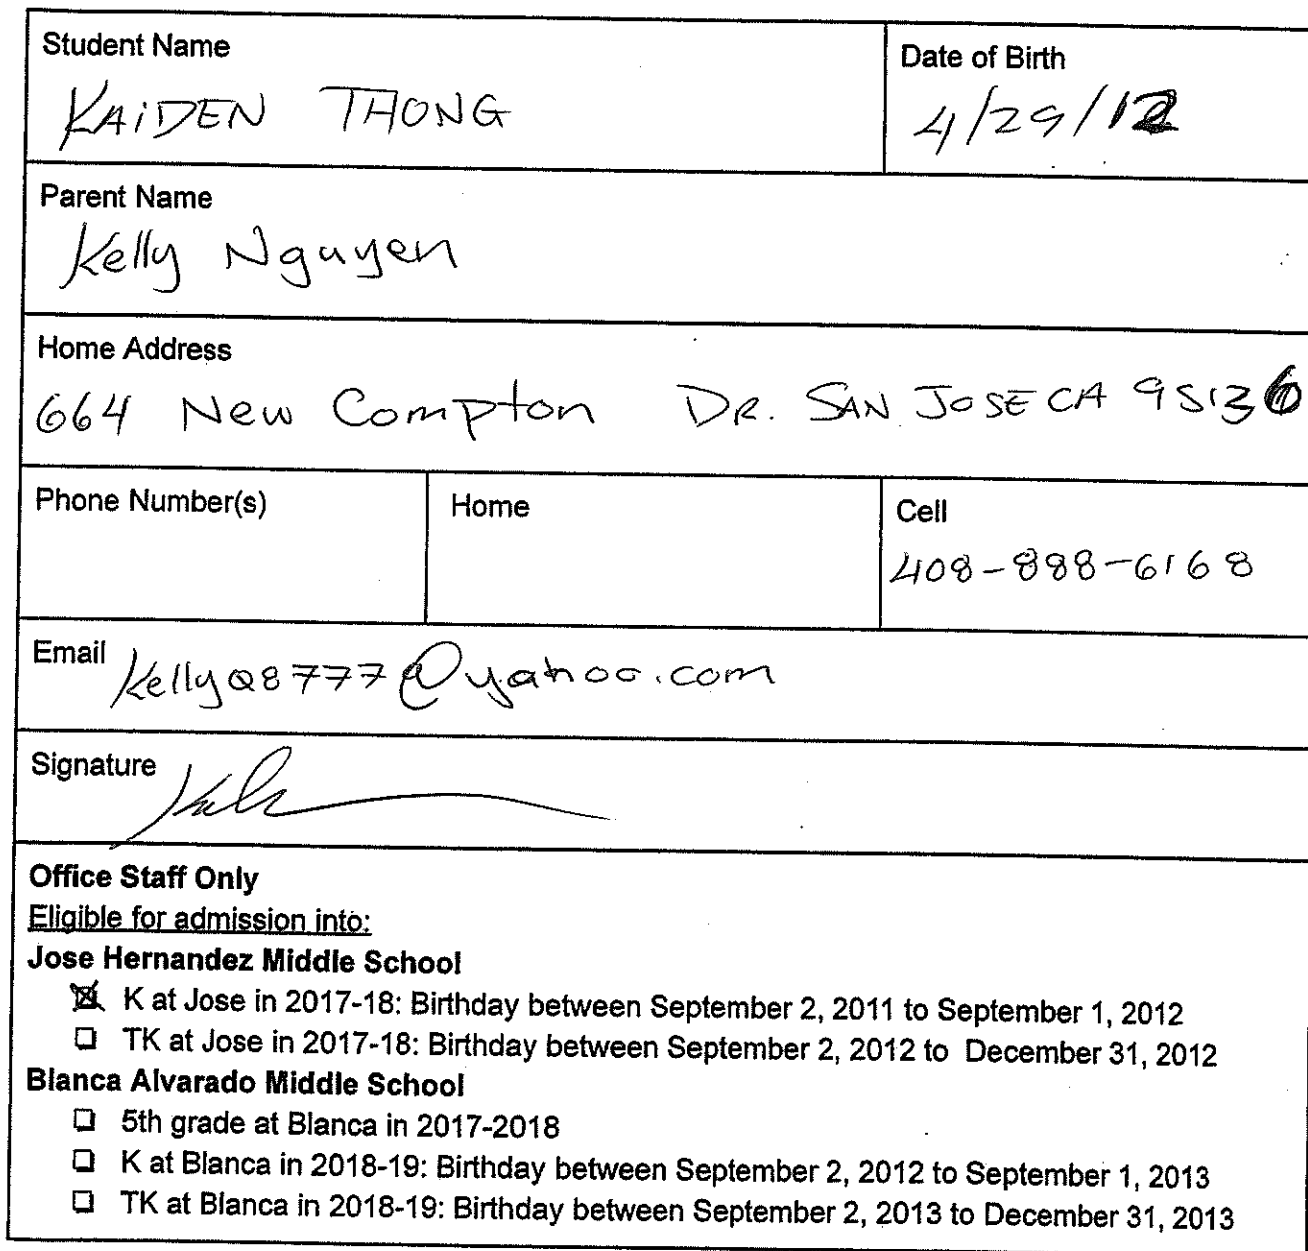 Student Name
Date of Birth
KAiDEN THONG
4/29/12
Parent Name
Kelly Nguyen
Home Address
664 New Compton DR. SAN JOSE CA 95136
Phone Number(s)
Home
Cell
408-888-6168
Email Kellyq8777@yahoo.com
Signature
Office Staff Only
Eligible for admission into:
Jose Hernandez Middle School
☒ K at Jose in 2017-18: Birthday between September 2, 2011 to September 1, 2012
☐ TK at Jose in 2017-18: Birthday between September 2, 2012 to December 31, 2012
Blanca Alvarado Middle School
☐ 5th grade at Blanca in 2017-2018
☐ K at Blanca in 2018-19: Birthday between September 2, 2012 to September 1, 2013
☐ TK at Blanca in 2018-19: Birthday between September 2, 2013 to December 31, 2013